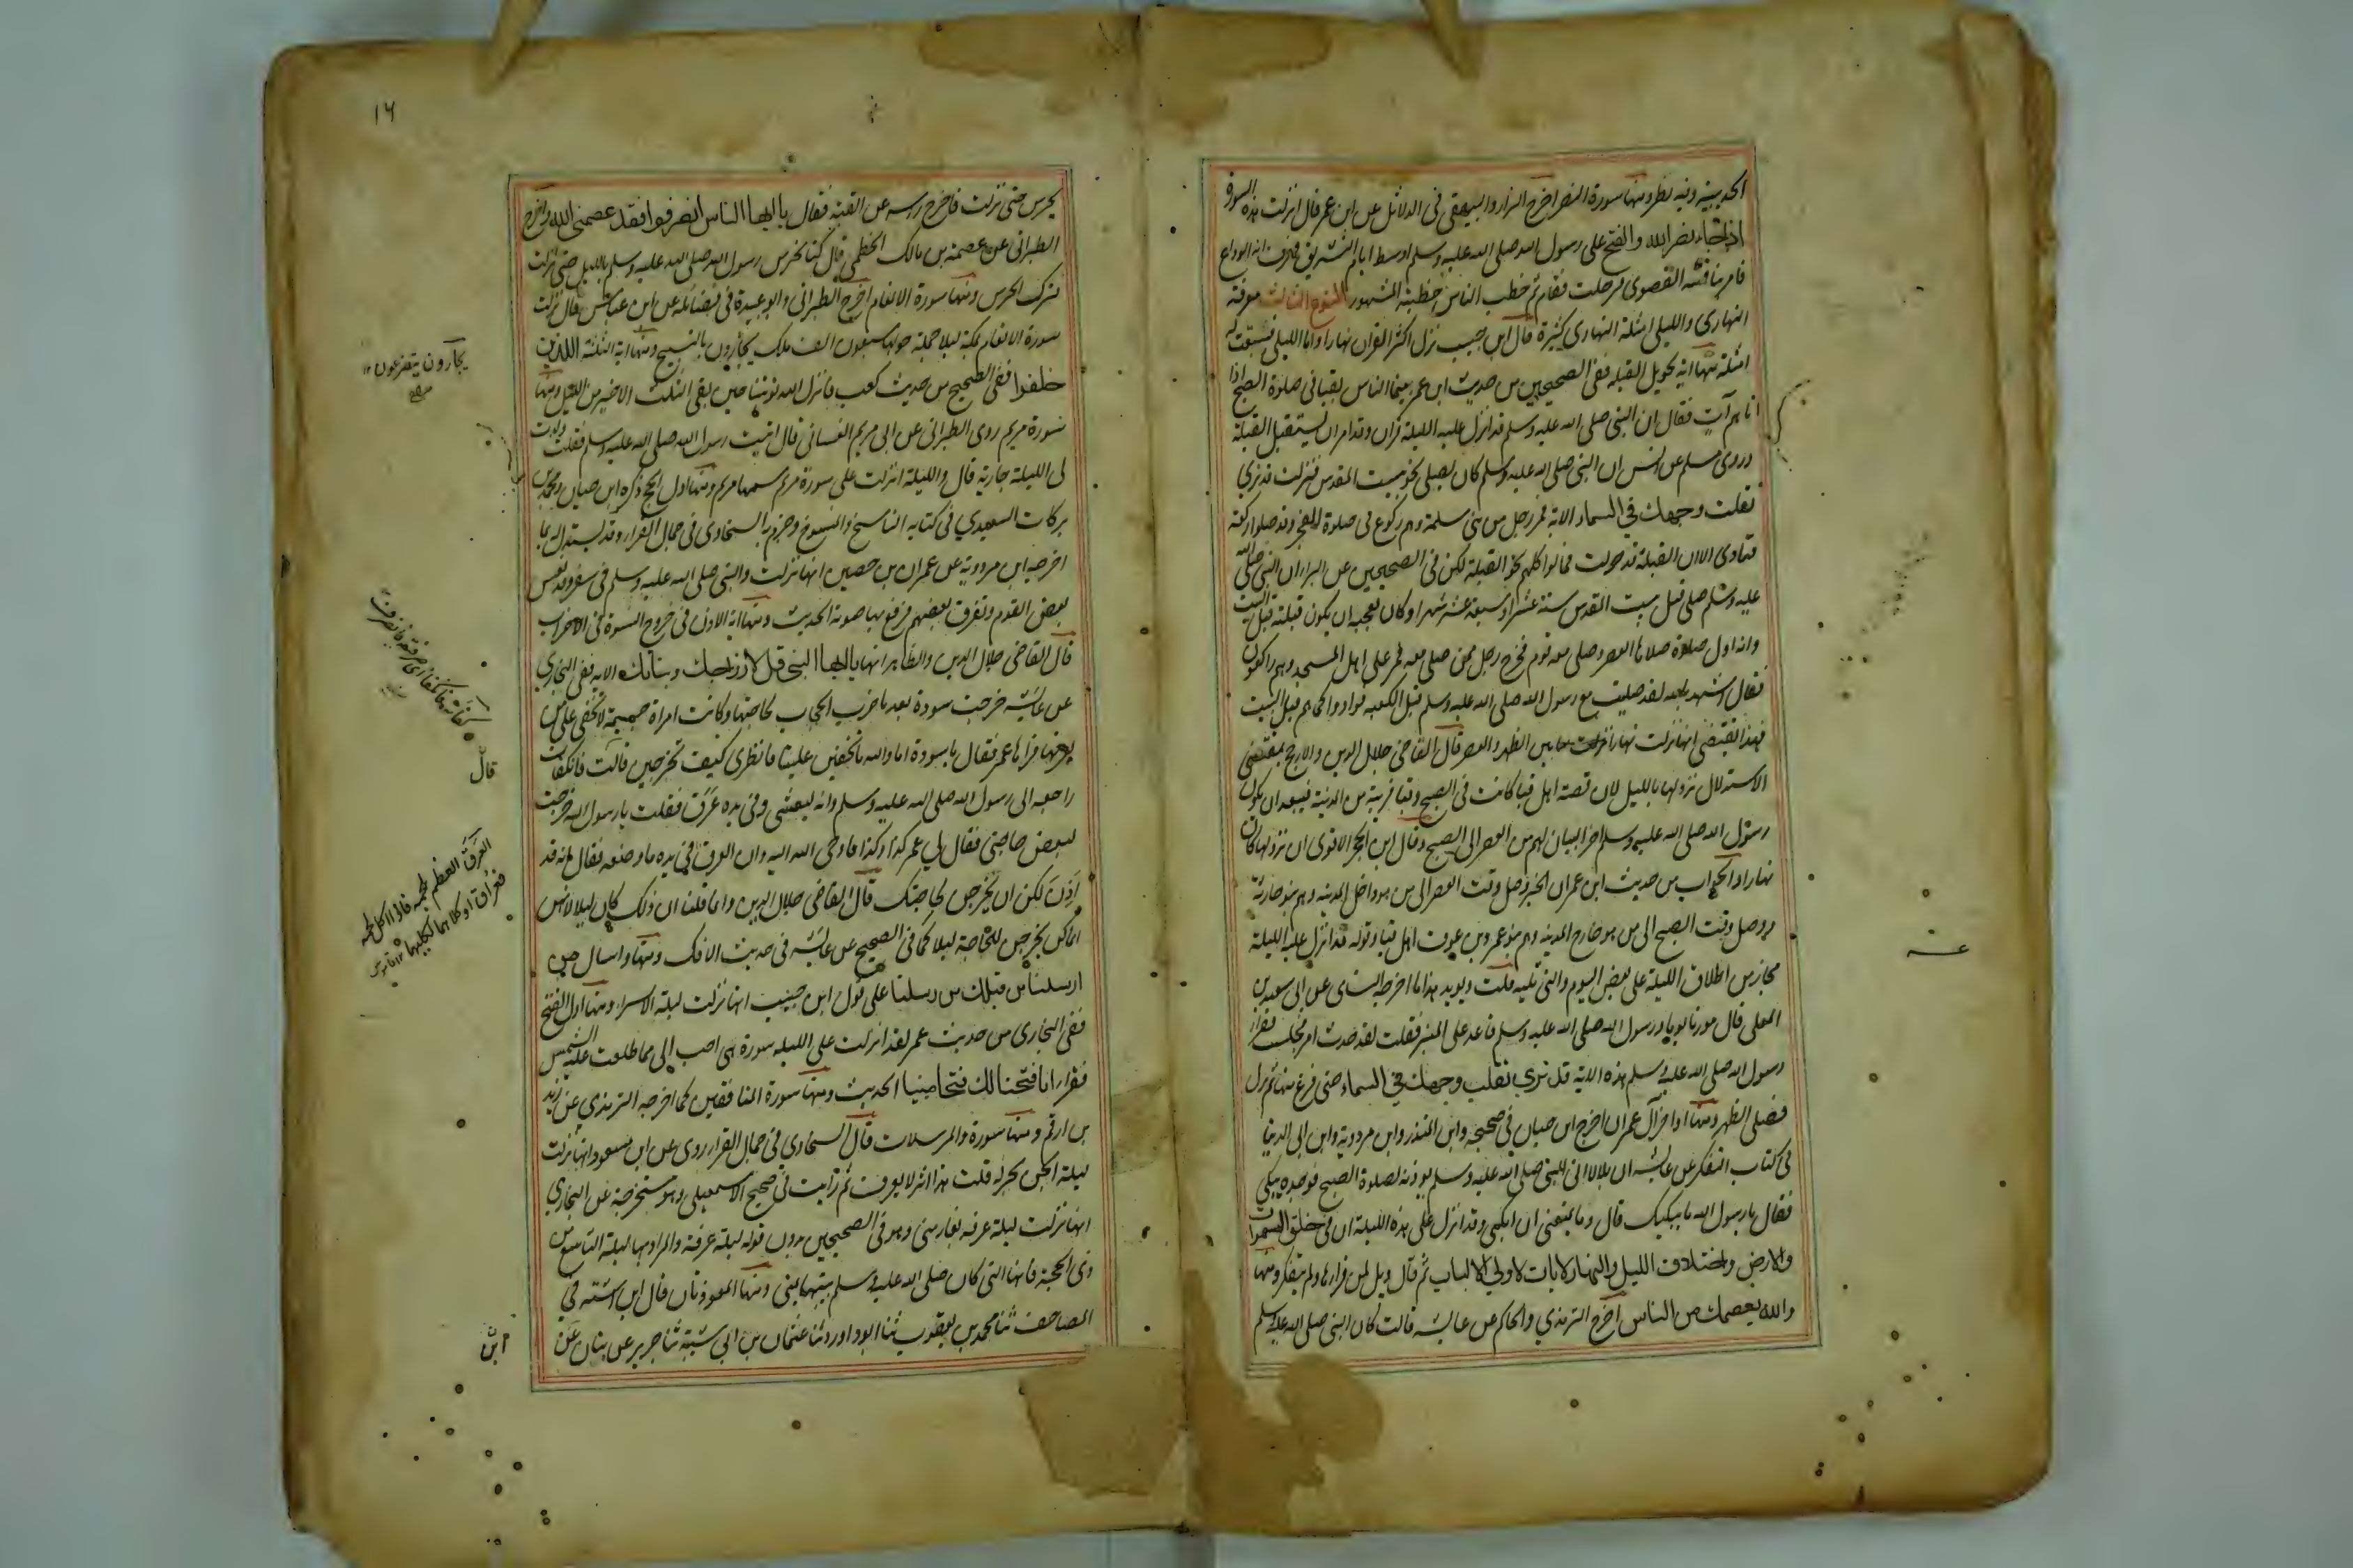 الحديبية وفيه نظر ومنها سورة النصر اخرج البزار والبيهقي في الدلائل عن ابن عمر قال انزلت هذه السورة
اذا جاء نصر الله والفتح على رسول الله صلى الله عليه وسلم اوسط ايام التشريق فعرف انه الوداع
فامر بناقته القصوى فرحلت فقام ثم خطب الناس خطبته المشهور النوع الثالث معرفة
النهاري والليلي امثلة النهاري كثيرة قال ابن حبيب نزل اكثر القران نهارا واما الليلي فتتبعت له
امثلة منها اية تحويل القبلة ففي الصحيحين من حديث ابن عمر بينما الناس بقبا في صلوة الصبح اذا
اتاهم آت فقال ان النبي صلى الله عليه وسلم قد انزل عليه الليلة قران وقد امر ان يستقبل القبلة
وروى مسلم عن انس ان النبي صلى الله عليه وسلم كان يصلي نحو بيت المقدس فنزلت قد نري
تقلب وجهك في السماء الاية فمر رجل من بني سلمة وهم ركوع في صلوة الفجر وقد صلوا ركعة
فنادى الا ان القبلة قد حولت فمالوا كلهم نحو القبلة لكن في الصحيحين عن البراء ان النبي صلى الله
عليه وسلم صلى قبل بيت المقدس ستة عشر او سبعة عشر شهرا وكان يعجبه ان يكون قبلته قبل البيت
وانه اول صلاة صلاها العصر وصلى معه قوم فخرج رجل ممن صلى معه فمر على اهل المسجد وهم راكعون
فقال اشهد بالله لقد صليت مع رسول الله صلى الله عليه وسلم قبل الكعبه فداروا كما هم قبل البيت
فهذا يقتضي انها نزلت نهارا بين الظهر والعصر قال القاضي جلال الدين والارجح بمقتضى
الاستدلال نزولها بالليل لان قصة اهل قبا كانت في الصبح وقبا قريبة من المدينة فيبعد ان يكون
رسول الله صلى الله عليه وسلم اخر البيان لهم من العصر الى الصبح وقال ابن الحجر الاقوى ان نزولها كان
نهارا والجواب من حديث ابن عمر ان الخبر وصل وقت العصر الى من هو داخل المدينه وهم بنو حارثة
ووصل وقت الصبح الى من هو خارج المدينه وهم بنو عمرو بن عوف اهل قبا وقوله قد انزل عليه الليلة
مجاز من اطلاق الليلة على بعض اليوم والتي تليه قلت ويويد هذا ما اخرجه النساى عن ابي سعيد بن
المعلى قال مررنا يوما ورسول الله صلى الله عليه وسلم قاعد على المنبر فقلت لقد حدث امر فجلست فقرا
رسول الله صلى الله عليه وسلم هذه الاية قد نري تقلب وجهك في السماء حتى فرغ منها ثم نزل
فصلى الظهر ومنها اواخر آل عمران اخرج ابن حبان في صحيحه وابن المنذر وابن مردوية وابن ابي الدنيا
في كتاب التفكر عن عائشه ان بلالا اتى النبي صلى الله عليه وسلم يوذنه لصلوة الصبح فوجده يبكي
فقال يا رسول الله ما يبكيك قال وما يمنعني ان ابكي وقد انزل علي هذه الليلة ان في خلق السموات
والارض واختلاف الليل والنهار لايات لاولي الالباب ثم قال ويل لمن قراها ولم يتفكر ومنها
والله يعصمك من الناس اخرج الترمذي والحاكم عن عايشه قالت كان النبي صلى الله عليه وسلم
١٦
يحرس حتى نزلت فاخرج راسه عن القبة فقال يا ايها الناس انصرفوا فقد عصمني الله واخرج
الطبراني عن عصمة بن مالك الخطمي قال كنا نحرس رسول الله صلى الله عليه وسلم بالليل حتى نزلت
فترك الحرس ومنها سورة الانعام اخرج الطبراني وابو عبيدة في فضائله عن ابن عباس قال نزلت
سورة الانعام بمكة ليلا جملة حولها سبعون الف ملك يجأرون بالتسبيح ومنها اية الثلثة الذين
خلفوا ففي الصحيح من حديث كعب فانزل الله توبتنا حين بقي الثلث الاخير من الليل ومنها
سورة مريم روى الطبراني عن ابي مريم الغساني قال اتيت رسول الله صلى الله عليه وسلم فقلت ولدت
لي الليلة جارية قال والليلة انزلت علي سورة مريم سمها مريم ومنها اول الحج ذكره ابن حبان ومحمد بن
بركات السعيدي في كتابه الناسخ والمنسوخ وجزم به السخاوى في جمال القرا وقد يستدل له بما
اخرجه ابن مردوية عن عمران بن حصين انها نزلت والنبي صلى الله عليه وسلم في سفر وقد نعس
بعض القوم وتفرق بعضهم فرفع بها صوته الحديث ومنها اية الاذن في خروج النسوة في الاحزاب
قال القاضي جلال الدين والظاهر انها يا ايها النبي قل لازواجك وبناتك الاية ففي البخاري
عن عائشه خرجت سودة بعد ما ضرب الحجاب لحاجتها وكانت امراة جسيمة لا تخفى على من
يعرفها فراها عمر فقال يا سودة اما والله ما تخفين علينا فانظري كيف تخرجين قالت فانكفات
راجعه الى رسول الله صلى الله عليه وسلم وانه ليتعشى وفي يده عرق فقلت يا رسول الله خرجت
لبعض حاجتي فقال لي عمر كذا وكذا فاوحى الله اليه وان العرق في يده ما وضعه فقال انه قد
اذن لكن ان تخرجن لحاجتكن قال القاضي جلال الدين وانما قلنا ان ذلك كان ليلا لانهن
انما كن يخرجن للحاجة ليلا كما في الصحيح عن عائشه في حديث الافك ومنها واسال من
ارسلنا من قبلك من رسلنا على قول ابن حبيب انها نزلت ليلة الاسرا ومنها اول الفتح
ففي البخاري من حديث عمر لقد انزلت علي الليله سورة هي احب الي مما طلعت عليه الشمس
فقرا انا فتحنا لك فتحا مبينا الحديث ومنها سورة المنافقين كما اخرجه الترمذي عن زيد
بن ارقم ومنها سورة والمرسلات قال السخاوي في جمال القرا روى عن ابن مسعود انها نزلت
ليلة الجن بحرا قلت هذا اثر لا يعرف ثم رايت في صحيح الاسمعيلي وهو مستخرجه على البخاري
انها نزلت ليلة عرفه بغار منى وهو في الصحيحين بدون قوله ليلة عرفة والمراد بها ليلة التاسع من
ذي الحجة فانها التي كان صلى الله عليه وسلم يبيتها بمنى ومنها المعوذتان قال ابن اشته في
المصاحف ثنا محمد بن يعقوب ثنا ابو داود وثنا عثمان بن ابي شيبة ثنا جرير عن بيان عن
يجأرون يتضرعون ١٢
قال
العرق العظم بلحمه فاذا اكل لحمه
فعراق او كلاهما لكليهما ١٢ قاموس